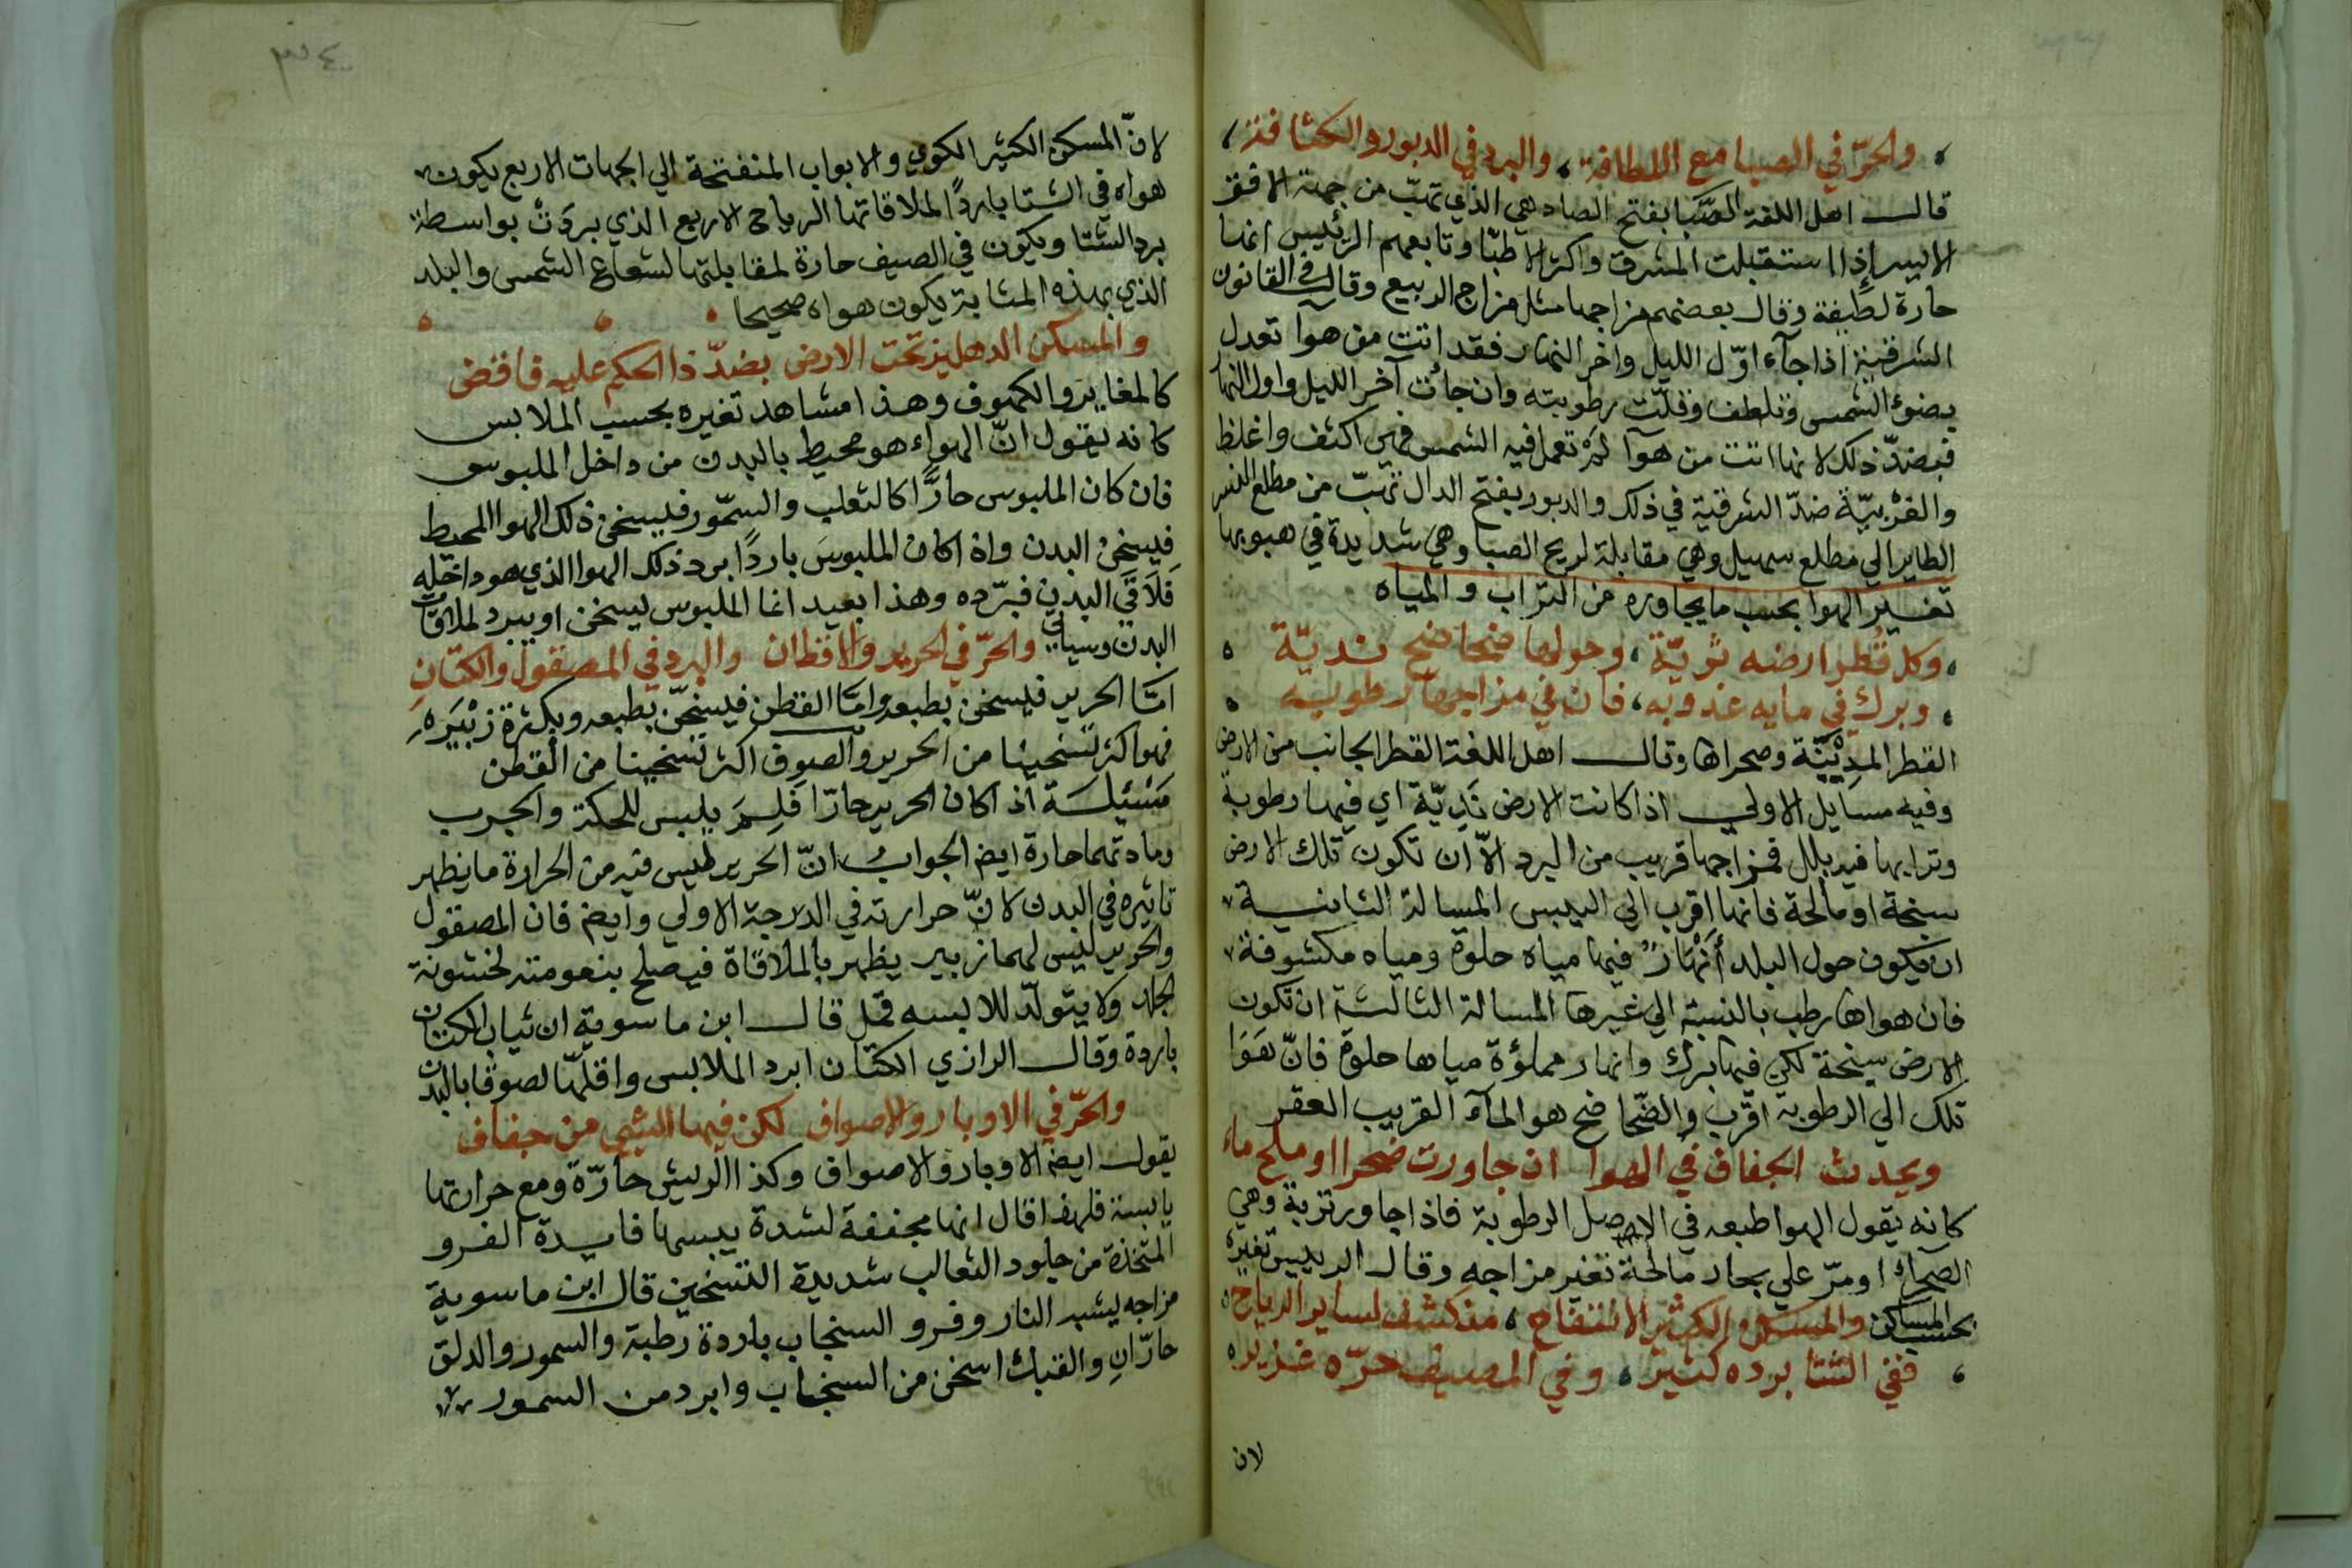 والحرّ في الصبا مع اللطافة، والبرد في الدبور والكثافة،
قال اهل اللغة الصَّبا بفتح الصاد هي الذي تهبّ من جهة الافق
الايسر إذا استقبلت المشرق واكثر الاطبّا وتابعهم الرئيس انها
حارة لطيفة وقال بعضهم مزاجها مثل مزاج الربيع وقال في القانون
الشرقية اذا جآء اوّل الليل واخر النهار فقد اتت من هوآ تعدل
بضوء الشمس وتلطف وقلّت رطوبته وان جائت آخر الليل واول النها
فبضدّ ذلك لانها اتت من هوآ لم تعمل فيه الشمس فهي اكثف واغلظ
والغربيّة ضدّ الشرقية في ذلك والدبور بفتح الدال تهبّ من مطلع النسر
الطاير الي مطلع سهيل وهي مقابلة لريح الصبا وهي شديدة في هبوبها
تغير الهوا بحسب ما يجاوره من التراب والمياه
وكل قُطر ارضه ثَريّة، وحولها ضحاضح نديّة
وبرك في مايه عذوبه، فان في مزاجها رطوبيه
القطر المدِيْنَة وصحراها وقال اهل اللغة القطر الجانب من الارض
وفيه مسايل الاولي اذا كانت الارض نَدِيّة اي فيها رطوبة
وترابها فيه بلل فمزاجها قريب من البرد الاّ ان تكون تلك الارض
سبخة او مالحة فانها اقرب الي اليبس المسالة الثانية
ان يكون حول البلد أنهارٌ فيها مياه حلوة ومياه مكشوفة
فان هواها رطب بالنسبة الي غيرها المسالة الثالثة ان تكون
الارض سبخة لكن فيها برك وانهار مملؤة مياها حلوة فانّ هَوَا
تلك الي الرطوبة اقرب والضحاضح هو المآء القريب العقر
ويحدث الجفاف في الهوا ان جاورت ضحرا او ملح ماء
كانه يقول الهوا طبعه في الاصل الرطوبة فاذا جاور تربة وهي
الصحراء او مرّ علي بحار مالحة تغير مزاجه وقال الرييس تغيره
بحسب المساكن والمسكن الكثير الانفتاح، منكشف لساير الرياح
ففي الشتا برده كثير، وفي المصيف حرّه غزير
لان
٣٤
لانّ المسكن الكثير الكوي والابواب المنفتحة الي الجهات الاربع يكون
هواه في الشتا بارداً لملاقاتها الرياح الاربع الذي بردَتْ بواسطة
برد الشتا ويكون في الصيف حارة لمقابلتها لشعاع الشمس والبلد
الذي بهذه المثابة يكون هواه صحيحا
والمسكن الدهليز تحت الارض بضدّ ذا الحكم عليه فاقض
كالمغاير والكهوف وهذا مشاهد تغيره بحسب الملابس
كانه يقول انّ الهواء هو محيط بالبدن من داخل الملبوس
فان كان الملبوس حارًّا كالثعلب والسمّور فليسخن ذلك الهوا المحيط
فيسخن البدن واذا كان الملبوسَ باردًا برد ذلك الهوا الذي هو داخله
فلاقَي البدن فبرّده وهذا بعيد انما الملبوس يسخن او يبرد لملاقات
البدن وسياتي والحرّ في الحرير والاقطان والبرد في المصقول والكتّانِ
امّا الحرير فيسخن بطبعه وامّا القطن فيسخّن بطبعه وبكثرة زئْبَرَهِ
فهو اكثر تسخينا من الحرير والصوف اكثر تسخينا من القطن
مَسْئِلَة اذا كان الحرير حارّا فَلِمَ يلبس للحكة والجرب
ومادتهما حارة ايض الجواب انّ الحرير ليس فيه من الحرارة ما يظهر
تاثيره في البدن لانّ حرارته في الدرجة الاولي وايض فان المصقول
والحرير ليس لهما زبير يظهر بالملاقاة فيصلح بنعومته لخشونة
الجلد ولا يتولّد للابسه قمل قال ابن ماسوية ان ثياب الكتان
باردة وقال الرازي الكتان ابرد الملابس واقلّها لصوقا بالبدن
والحرّ في الاوبار والاصواف لكن فيها الشي من جفاف
يقول ايض الاوبار والاصواف وكذا الريش حارّة ومع حرارتها
يابسة فلهذا قال انها مجففة لشدة يبسها فايدة الفرو
المتخذة من جلود الثعالب شديدة التسخين قال ابن ماسوية
مزاجه يشبه النار وفرو السنجاب باردة رطبة والسمور والدلق
حارّانِ والفنك اسخن من السنجاب وابرد من السمور